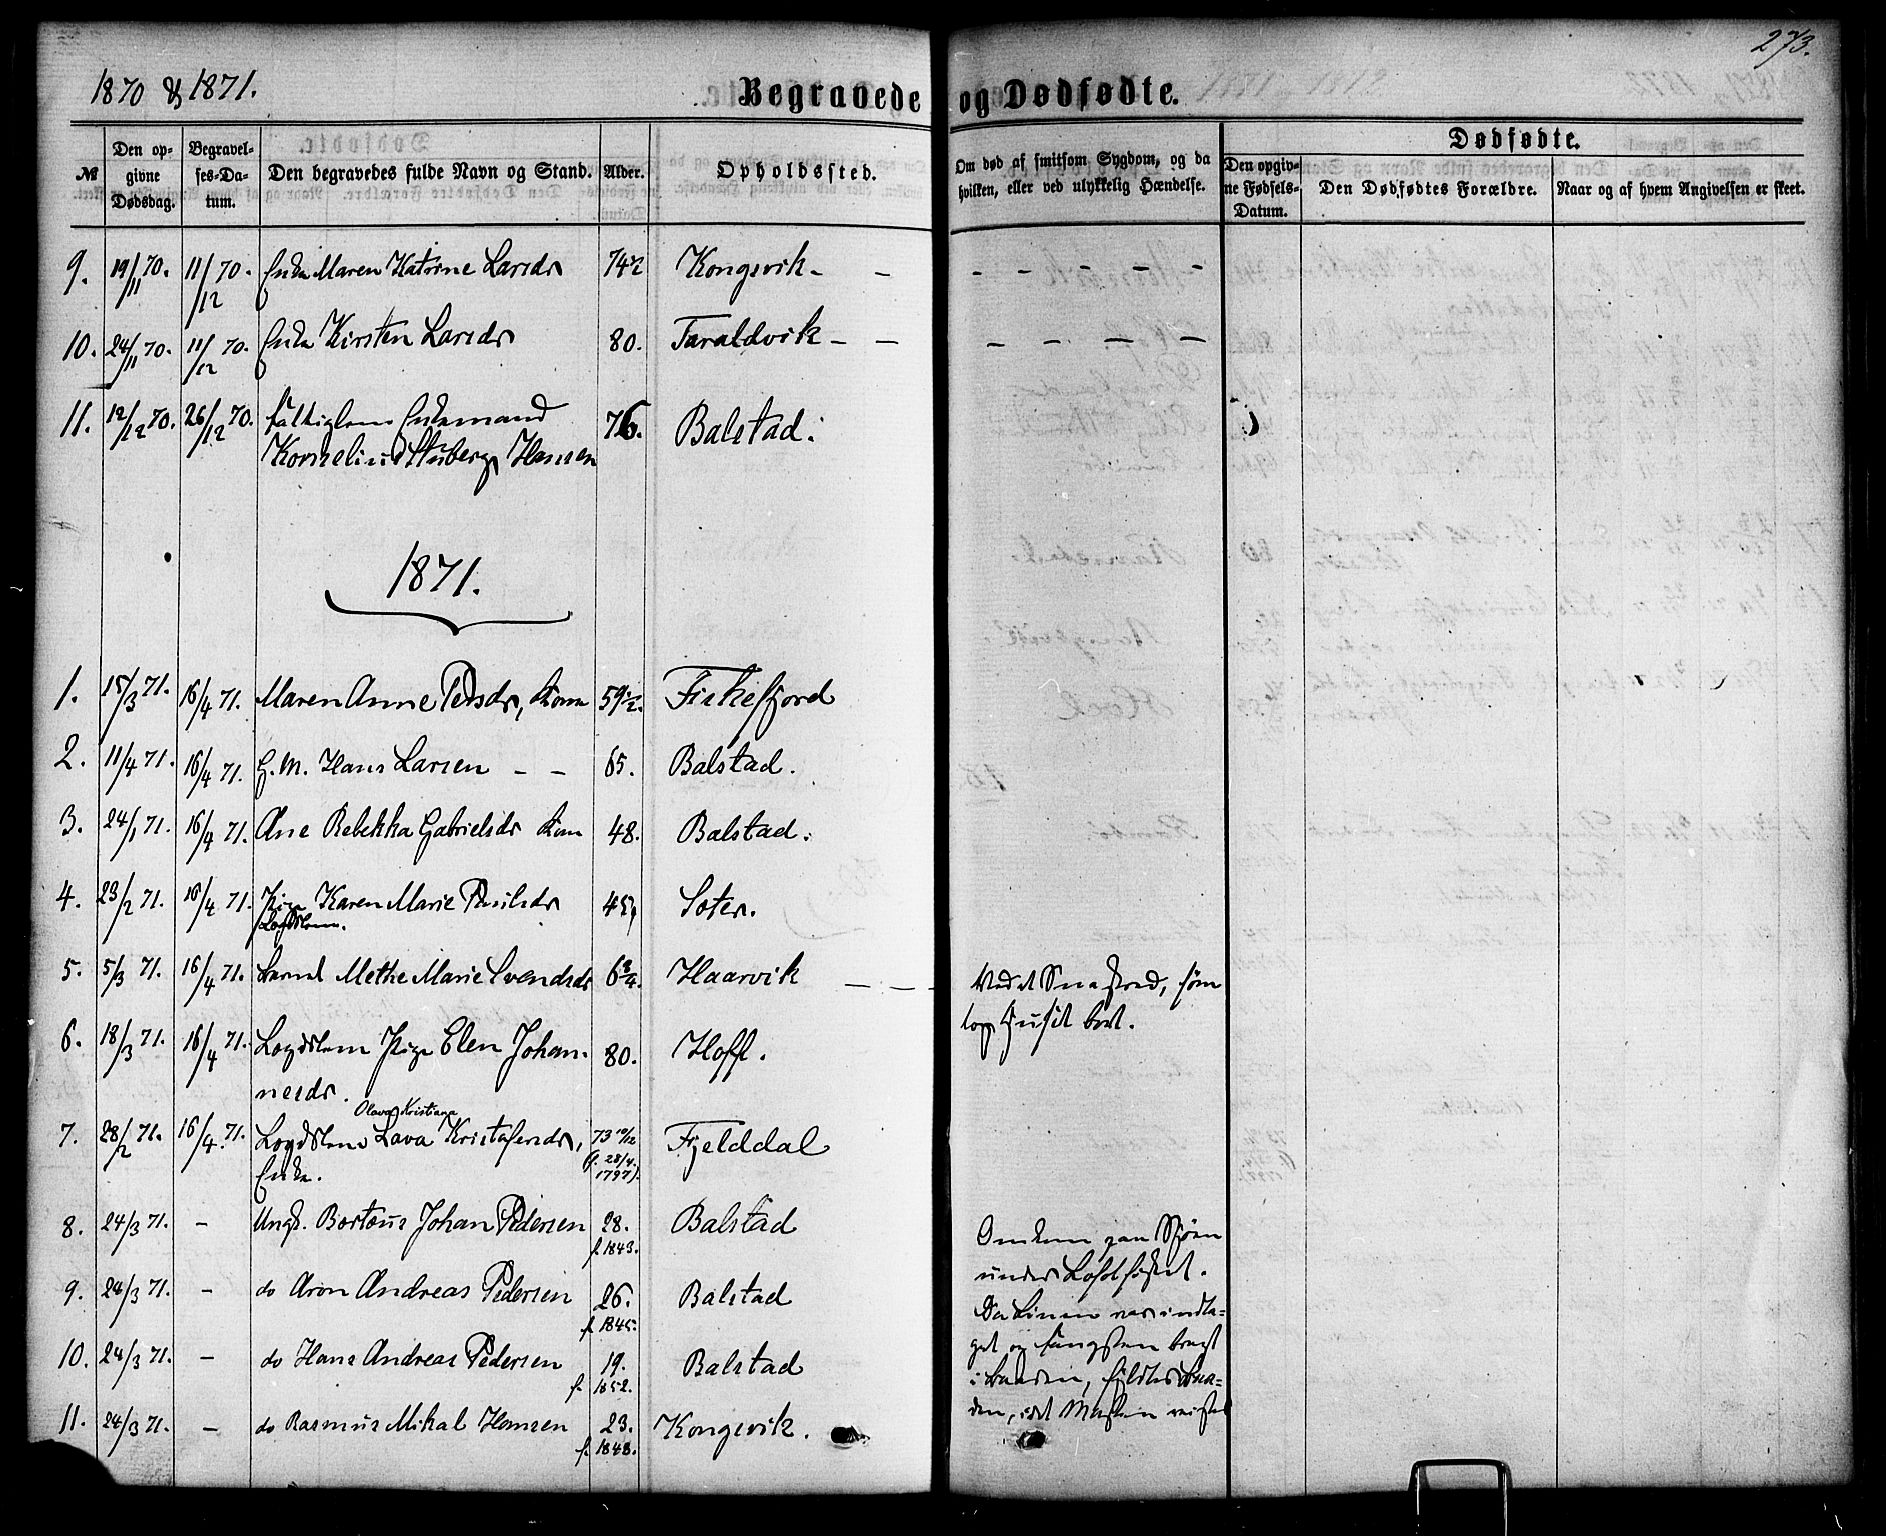 273.
1870 & 1871.
Begravede og Dødfødte.
Dødfødte.
№
Den op-
givne
Dødsdag.
Begravel-
ses-Da-
tum.
Den begravedes fulde Navn og Stand.
Alder.
Opholdssted.
Om død af smitsom Sygdom, og da
hvilken, eller ved ulykkelig Hændelse.
Den opgiv-
ne Fødsels-
Datum.
Den Dødfødtes Forældre.
Naar og af hvem Angivelsen er skeet.
9. 19/11 70. 11/12 70. Enke Maren Katrine Larsdr 74 1/2 Kongsvik - -
10. 24/11 70. 11/12 70. Enke Kirsten Larsdr 80. Taraldvik - -
11. 12/12 70. 26/12 70. Fattiglem Enkemand 76. Balstad.
Kornelius Stuberg Hansen
1871.
1. 15/3 71. 16/4 71. Maren Anne Pedsdr, Kone 59 1/2. Fiskefjord
2. 11/4 71. 16/4 71. G. M. Hans Larsen - - 65. Balstad.
3. 24/1 71. 16/4 71. Ane Rebekka Gabrielsdr Kone 48. Balstad.
4. 23/2 71. 16/4 71. Pige Karen Marie Poulsdr Soter.
Lægdslem.
5. 5/3 71. 16/4 71. Barnet Methe Marie Svendsdr 6 3/4. Haarvik - - Ved et Sneskred, som
tog Huset bort.
6. 18/3 71. 16/4 71. Lægdslem Pige Elen Johan- 80. Hoff.
nesdr.
Olava Kristiana
7. 28/2 71. 16/4 71. Lægdslem Lava Kristofersdr, 73 10/12 Fjelddal
Enke. (f. 28/4. 1797).
8. 24/3 71. - Ungk. Bortæus Johan Pedersen 28. Balstad
f. 1843. Omkom paa Sjøen
under Lofotfisket.
9. 24/3 71. - do Aron Andreas Pedersen 26. Balstad
f. 1845. Da Linen var indta-
get og Fangsten bragt
10. 24/3 71. - do Hans Andreas Pedersen 19. Balstad
f. 1852. i Baaden, fyldtes Baa-
11. 24/3 71. - do Rasmus Mikal Hansen 23. Kongsvik. den, idet Masten reistes
f. 1848.